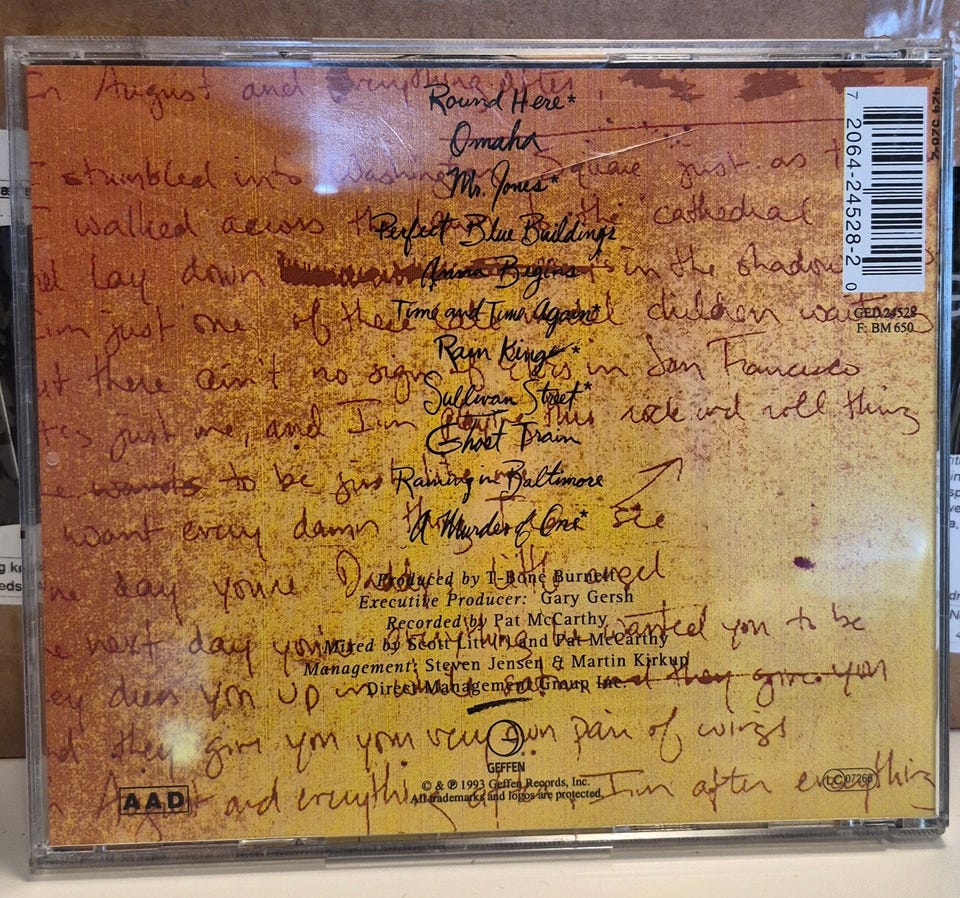 In August and everything after,
Round Here*
Omaha
stumbled into Washington Square just as t
Mr. Jones*
I walked across the the cathedral
Perfect Blue Buildings
lay down in the shadow
Anna Begins
Time and Time Again*
I'm just one of these late children waiting
Rain King*
there ain't no sign of in San Francisco
Sullivan Street*
just me, and I'm this rock and roll thing
Ghost Train
wants to be just
Raining in Baltimore
want every damn thing I see
A Murder of One*
day you're Daddy's little angel
Produced by T-Bone Burnett
Executive Producer: Gary Gersh
Recorded by Pat McCarthy
next day you're everything wanted you to be
Mixed by Scott Litt and Pat McCarthy
Management: Steven Jensen & Martin Kirkup
dress you up in and they give you
Direct Management Group Inc.
they give you your very own pair of wings
GEFFEN
© & ℗ 1993 Geffen Records, Inc.
All trademarks and logos are protected.
August and everything I'm after everything
AAD
LC 07266
7 2064-24528-2 0
GED 24528
F: BM 650